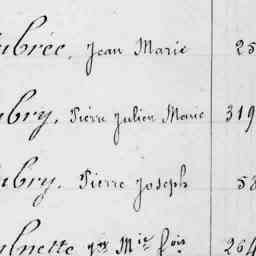 ubrée, Jean Marie 25
ubry, Pierre Julien Marie 319
ubry, Pierre Joseph 58
ubnette Jn Mie fois 264